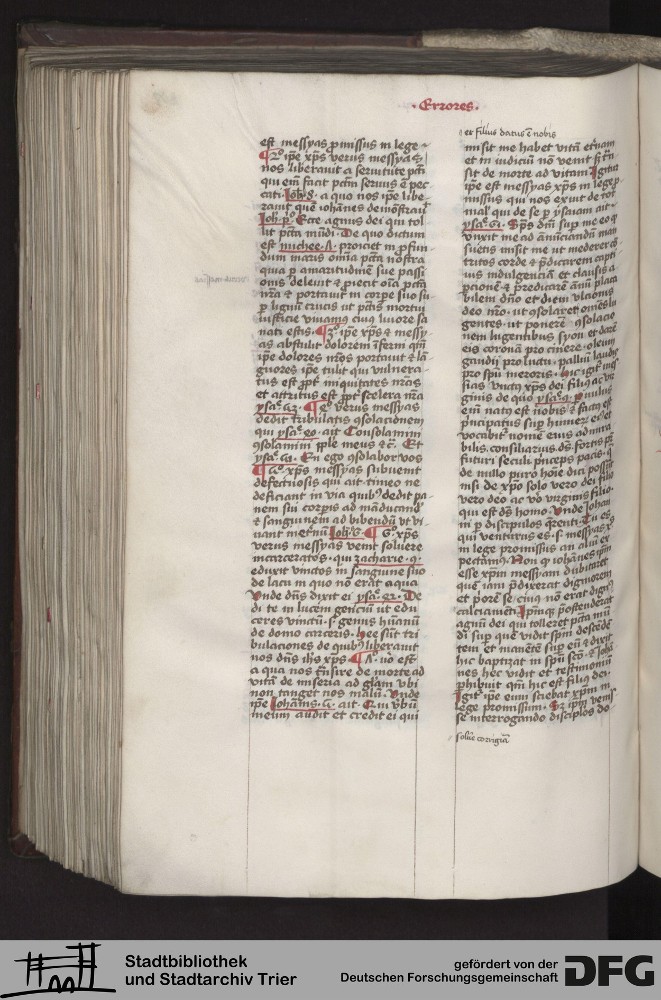 · Errores ·
est messyas promissus in lege ~
¶ 2º ipe xps verus messyas
nos liberavit a servitute pcti
qui eni facit pctm servus e pec
cati. Joh. 8. a quo nos ipe libe
ravit que iohanes demostravit
Joh. pº. Ecce agnus dei qui tol
lit pcta mudi. De quo dictum
est michee. proiciet in profun
dum maris omia pcta nostra
quia p amaritudine sue passi
onis delevit et proiecit oia pcta
nra et portavit in corpe suo su
p lignu crucis ut pctis mortui
iusticie vivamus cuius livore sa
nati estis. ¶ 3º ipe xps et messy
as abstulit dolorem
ipe dolores nros portavit et la
guores ipe tulit qui vulnera
tus est propt iniquitates nras
et attritus est propt scelera nra
ysa. 53. ¶ 4º verus messyas
dedit tribulatis consolacionem
qui ysa. 40. ait Consolamini
consolamini pple meus et c. Et
ysa. 51. En ego consolabor vos
¶ 5º xps messyas subvenit
defectuosis qui ait timeo ne
deficiant in via quibus dedit pa
nem sui corpis ad manducand
et sanguinem ad bibendu ut vi
vant in eternu Joh. 6. ¶ 6º xps
verus messyas venit solvere
incarceratos. qui zacharie. 9.
eduxit vinctos in sanguine suo
de lacu in quo no erat aqua
Unde dns dixit ei ysa. 42. De
di te in lucem genciu ut edu
ceres vinctu. s. genus humanu
de domo carceris. hee sut tri
bulaciones de quibus liberavit
nos dns ihs xps. ¶ Aº. vo est
a qua nos transire de morte ad
vita de miseria ad gliam ubi
non tanget nos malu. Unde
ipe Johannis. 5. ait. Qui verbu
meum audit et credit ei qui
et filius datus e nobis
misit me habet vita eternam
et in iudiciu no venit s tran
sit de morte ad vitam. Igitur
ipe est messyas xps in lege p
missus qui nos exuit de tot
mal' qui de se p ysaiam ait
ysa. 61. Sps dni sup me eo q
unxit me ad anunciandu man
suetis misit me ut mederer co
tritos corde et predicarem capti
vis indulgenciam et clausis a
pcione et predicare annu placa
bilem dno et diem ulcionis
deo nro. ut consolaret omes lu
gentes. ut ponere consolacio
nem lugentibus syon et dare
eis corona pro cinere. oleum
gaudii pro luctu. palliu laudis
pro spu meroris. hic igit mes
sias unctus xps dei filius ac vir
ginis de quo ysa. 9. Pvulus
eni natus est nobis et factus est
principatus sup humeru ei et
vocabit nome eius admira
bilis. consiliarius. ds. fortis pr
futuri seculi princeps pacis. q
de nullo puro hoie dici possut
nisi de xpo solo vero dei filio
vero deo ac vo virginis filio.
qui est ds homo. Unde Johan
in p discipulos querenti. Tu es
qui venturus es. s. messyas xs
in lege promissus an aliu ex
pectamus. Non q iohanes ipm
esse xpm messyam dubitaret
que iam predixerat digniorem
et priore se/ cuius no erat dignus
calciameti. Ipmque postenderat
agnu dei qui tolleret pcta mu
di sup que vidit spm descede
tem et manete sup eu et dixit
hic baptizat in spu sco. et Joha
nes hec vidit et testimoniu
phibuit qm hic est filius dei.
Igit ipe eum sciebat xpm in
lege promissum. Sz ipm venis
se interrogando disciplos do
solue corrigia
Stadtbibliothek
und Stadtarchiv Trier
gefördert von der
Deutschen Forschungsgemeinschaft
DFG